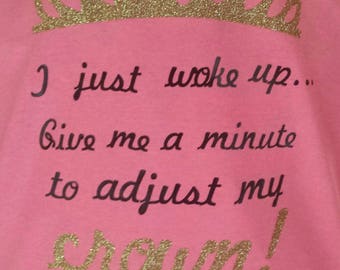 I just woke up...
Give me a minute
to adjust my
crown!